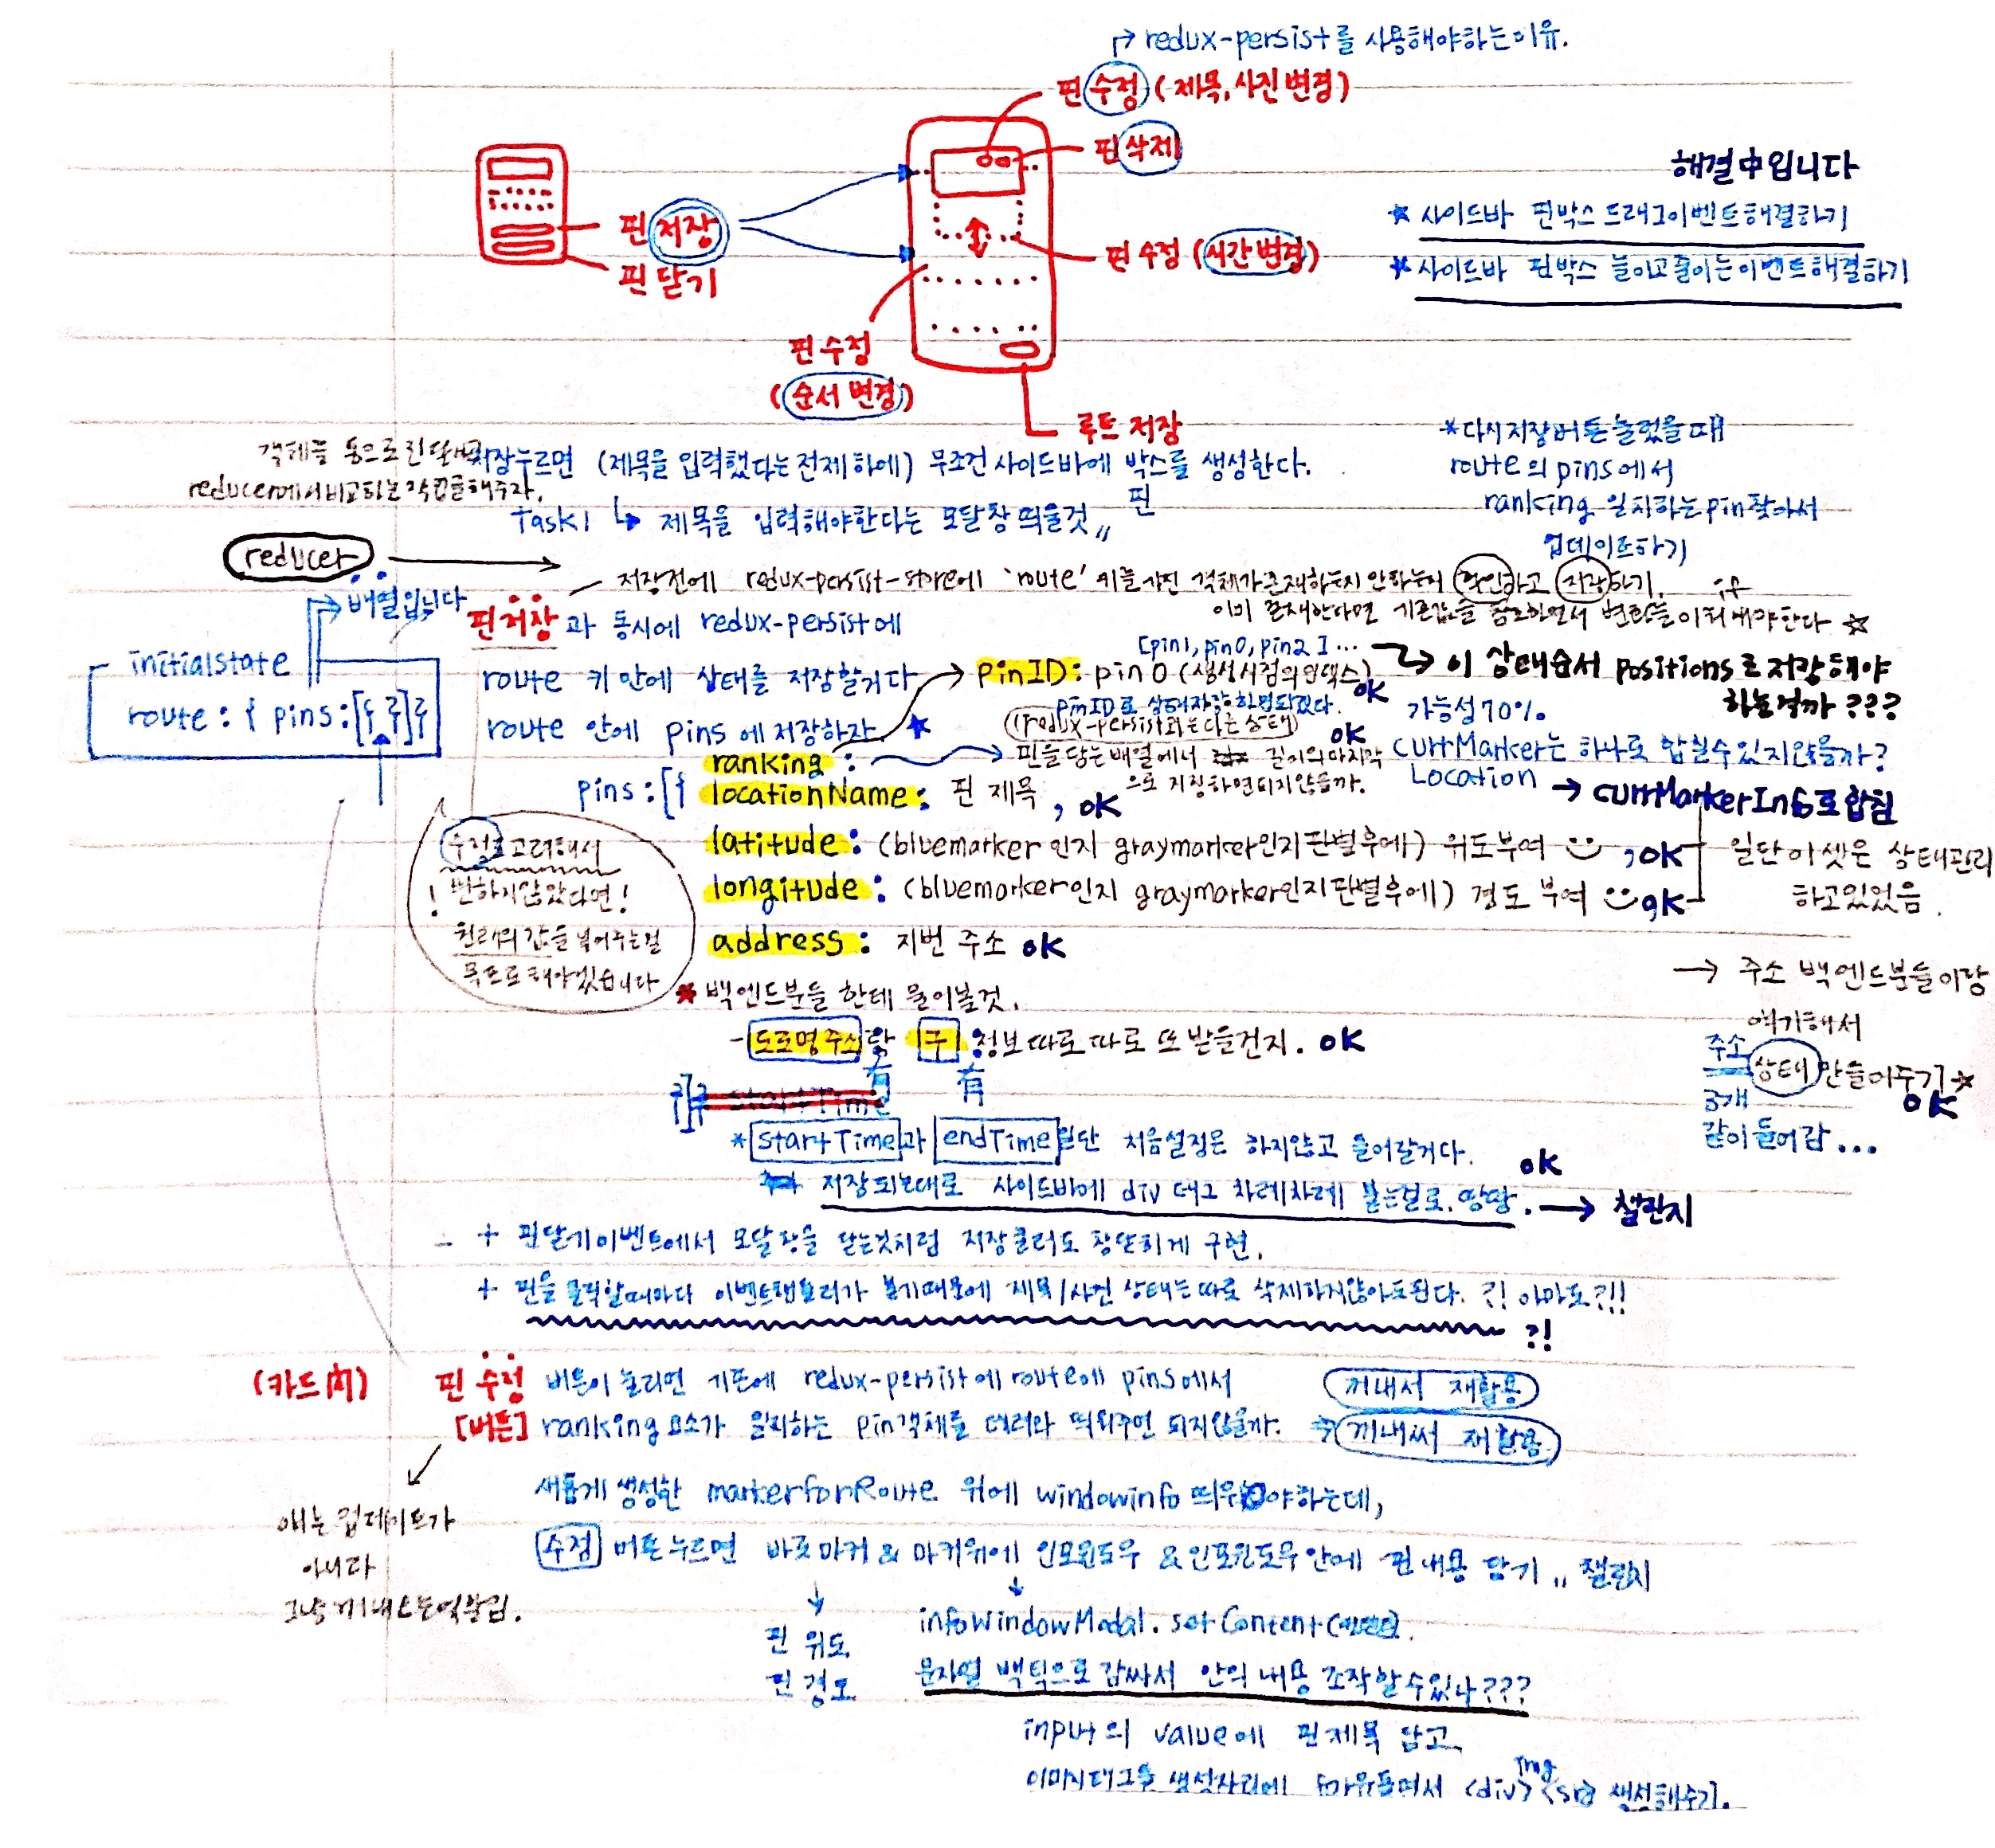 redux-persist를 사용해야하는이유.
핀 수정 ( 제목, 사진 변경)
핀 삭제
해결中입니다
핀 저장
핀 닫기
* 사이드바 핀박스 드래그이벤트해결하기
핀 수정 (시간 변경)
* 사이드바 핀박스 늘이고줄이는이벤트해결하기
핀 수정
(순서 변경)
루트 저장
객체를 통으로
reducer에서비교하는작업을해주자.
저장누르면 (제목을 입력했다는 전제하에) 무조건 사이드바에 박스를 생성한다.
핀
Task1 ↳ 제목을 입력해야한다는 모달창 띄울것,,
*다시저장버튼눌렀을때
route의 pins에서
ranking 일치하는pin찾아서
업데이트하기
reducer
배열입니다
저장전에 redux-persist-store에 'route' 키를 가진 객체가존재하는지 안하는지 확인하고 저장하기. if
이미 존재한다면 기존값을 참고하면서 변화를이뤄내야한다 ☆
핀 저장 과 동시에 redux-persist에
initialstate
route : { pins:[{ }]}
route 키 안에 상태를 저장할거다
route 안에 pins 에저장하자 ★
[pin1, pin0, pin2 ] ...
→ 이 상태순서 positions로저장해야
하는걸까 ???
pinID : pin 0 (생성시점의인덱스) OK
pinID로 상태저장하면되겠다.
(redux-persist와는다른상태)
가능성70%.
ranking : → 핀을담는배열에서 길이의마지막
으로 지정하면되지않을까. OK
currMarker는 하나로 합칠수있지않을까?
Location → currMarkerInfo로합침
pins:[{ locationName: 핀 제목 , OK
latitude : (bluemarker인지 graymarker인지판별후에) 위도부여 , OK
longitude : (bluemarker인지 graymarker인지판별후에) 경도 부여 , OK
일단 이 셋은 상태관리
하고있었음.
address : 지번 주소 OK
수정도고려해서
! 변하지않았다면!
원래의 값을 넣어주는걸
목표로해야겠습니다
* 백엔드분들 한테 물어볼것.
- 도로명주소랑 구 정보따로따로 또 받을건지. OK
有 有
→ 주소 백엔드분들이랑
얘기해서
주소 상태 만들어주기 ☆
OK
3개
같이들어감...
}]} startTime
* startTime과 endTime일단 처음설정은 하지않고 들어갈거다. OK
저장되는대로 사이드바에 div 태그 차례차례 붙는걸로. 땅땅. → 챌린지
+ 핀닫기이벤트에서 모달창을 닫는것처럼 저장클러도 창닫히게 구현.
+ 핀을 클릭할때마다 이벤트핸들러가 붙기때문에 제목/사진 상태는따로 삭제하지않아도된다. ?! 아마도?!!
?!
(카드內) 핀 수정 버튼이 눌리면 기존에 redux-persist에route에 pins에서
꺼내서 재활용
[버튼] ranking요소가 일치하는 pin객체를 데려와 띄워주면 되지않을까.
꺼내써 재활용
얘는업데이트가
아니라
그냥꺼내쓰는역할임.
새롭게생성한 markerforRoute 위에 windowinfo 띄워야하는데,
수정 버튼누르면 바로마커 & 마커위에 인포윈도우 &인포윈도우안에 핀내용 담기 ,, 챌린지
핀 위도
핀 경도
infowindowModal.setContent(
문자열 백틱으로 감싸서 안의내용 조작할수있나???
input의 value에 핀제목 담고
이미지태그를 생성자리에 for문돌면서 <div> img <src 생성해주기.